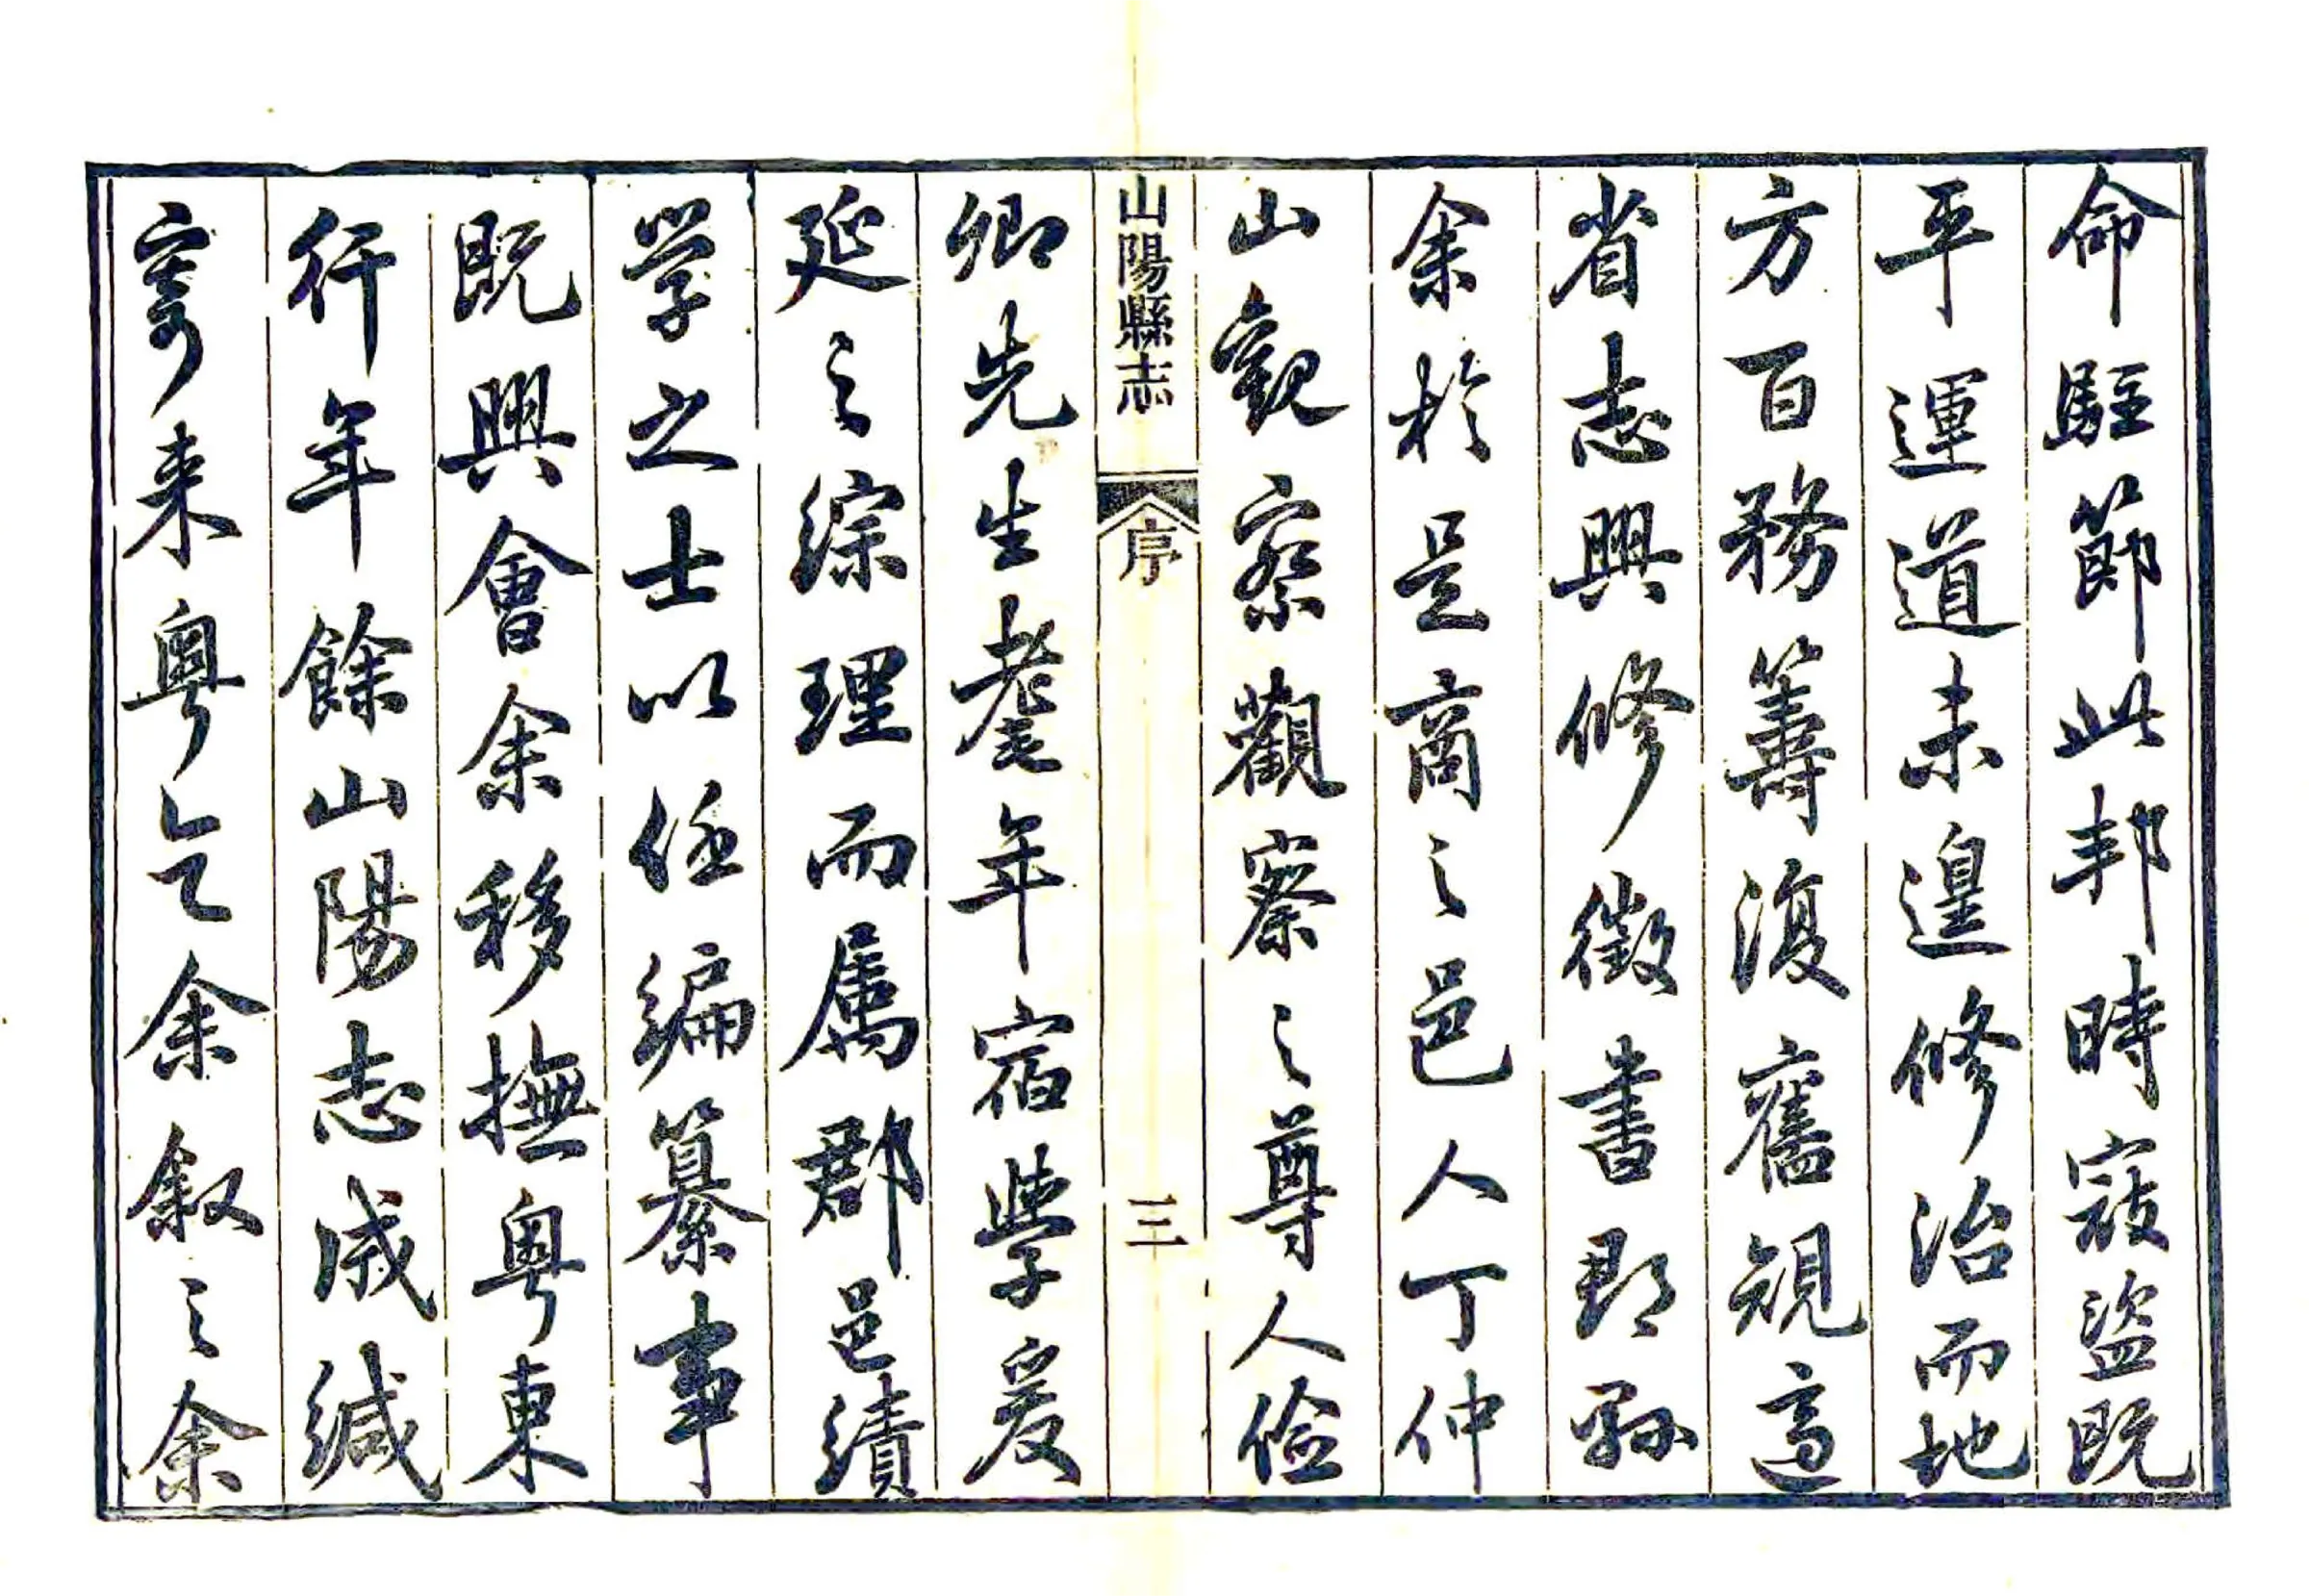 命駐節此邦時寇盜既
平運道未遑修治而地
方百務籌復舊規適
省志興修徵書郡縣
余於是商之邑人丁仲
山觀察觀察之尊人儉
山陽縣志 序 三
卿先生耄年宿學爰
延之綜理而屬郡邑績
学之士以任編纂事
既興會余移撫粵東
行年餘山陽志成緘
寄来粵乞余叙之余